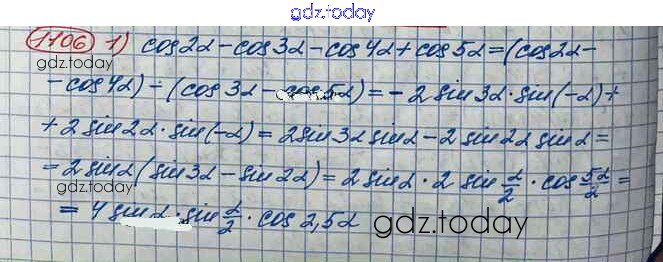 gdz.today
1106 1) cos2α - cos3α - cos4α + cos5α = (cos2α -
gdz.today
- cos4α) - (cos3α - cos5α) = - 2 sin3α · sin(-α) +
+ 2 sin2α · sin(-α) = 2sin3α sinα - 2 sin2α sinα =
= 2 sinα (sin3α - sin2α) = 2 sinα · 2 sin α/2 · cos 5α/2 =
gdz.today
= 4 sinα · sin α/2 · cos 2,5α
gdz.today